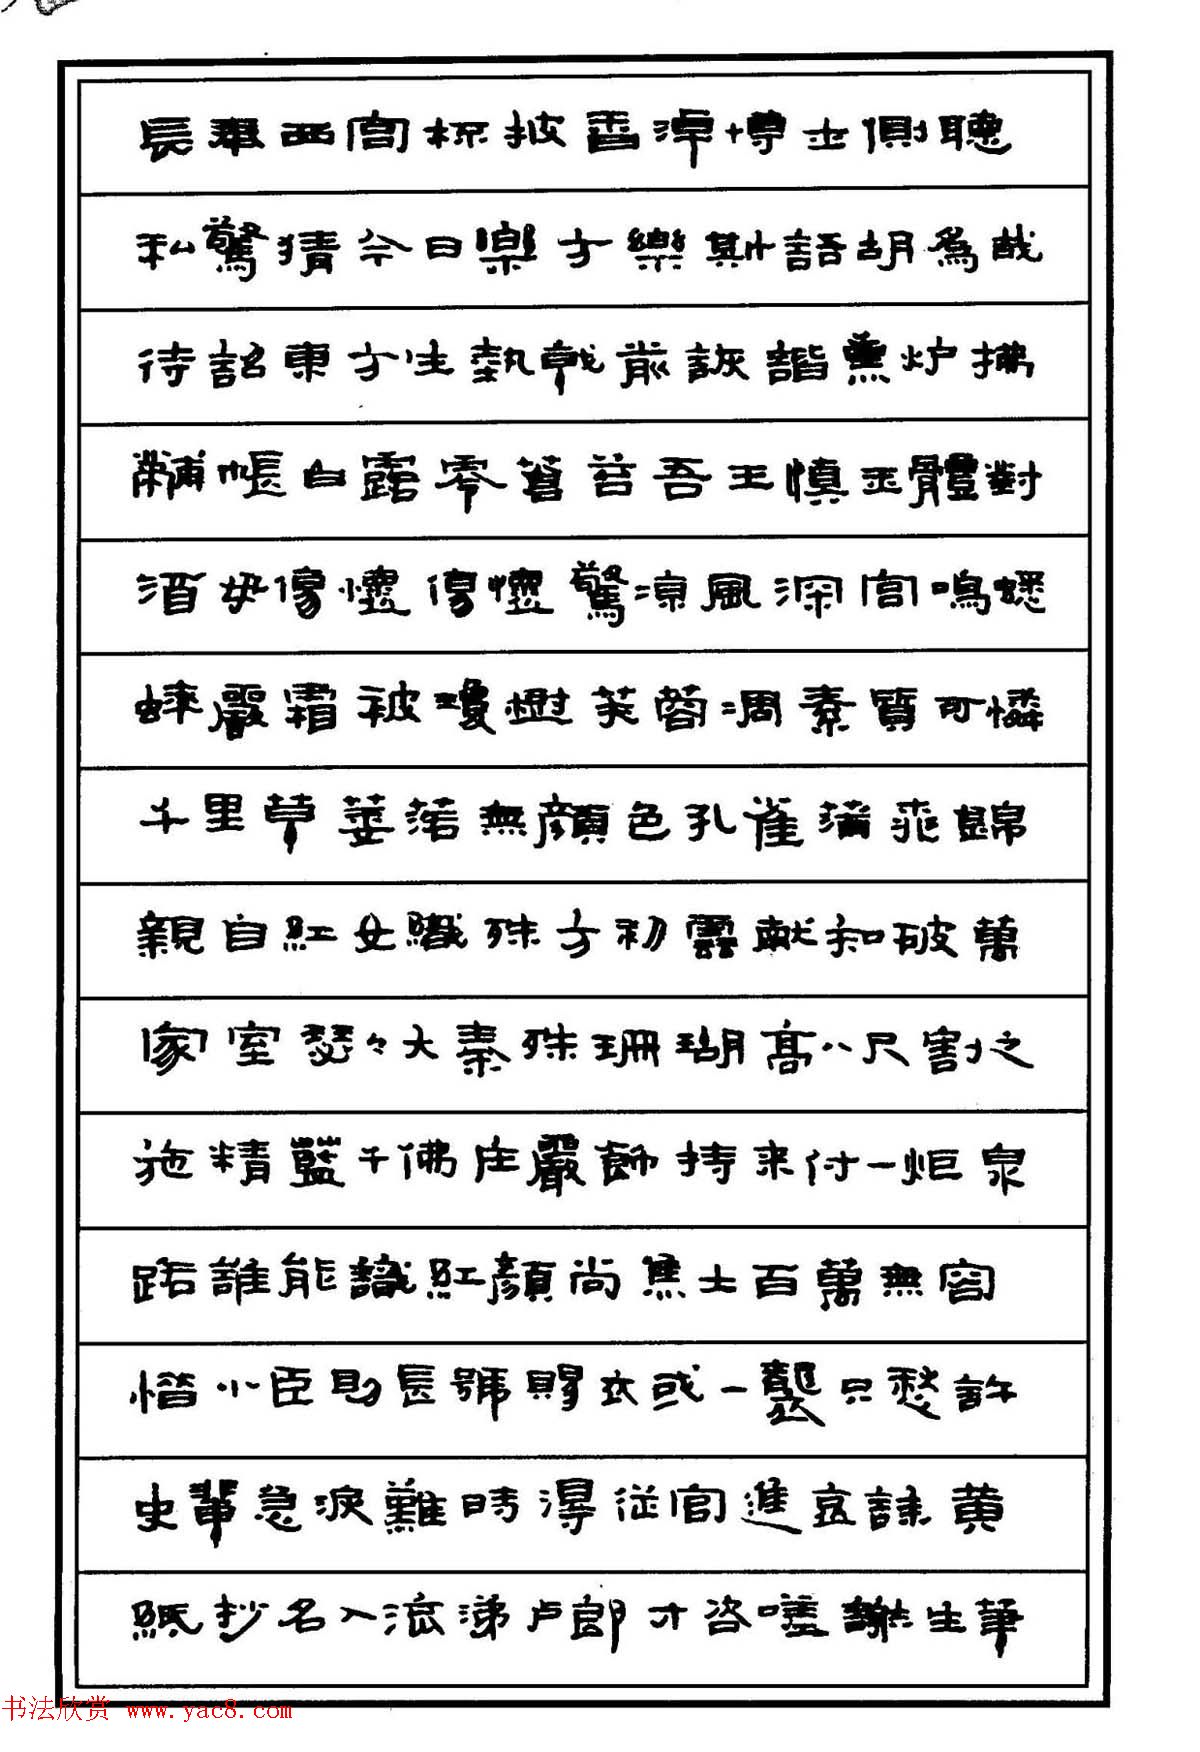 長奉西宮杯披香淖博士側聽
私驚猜今日樂方樂斯語胡為哉
待詔東方生執戟前詼諧熏炉拂
黼帳白露零蒼苔吾王慎玉體對
酒毋傷懷傷懷驚涼風深宮鳴蟋
蟀嚴霜被瓊樹芙蓉凋素質可憐
千里草萎落無顏色孔雀蒲桃錦
親自紅女織殊方初雲献知破萬
家室瑟々大秦珠珊瑚高八尺割之
施精藍千佛庄嚴飾持来付一炬泉
路誰能識紅顏尚焦土百萬無容
惜小臣助長號賜衣或一襲只愁許
史輩急淚難時得従官進哀誄黄
紙抄名入流涕卢郎才咨嗟謝生筆
书法欣赏 www.yac8.com